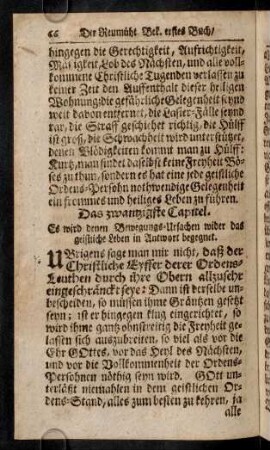 66 Der Reumüht. Bek. erstes Buch/
hingegen die Gerechtigkeit, Aufrichtigkeit,
Mässigkeit, Lob des Nächsten, und alle voll-
kommene Christliche Tugenden verlassen zu
keiner Zeit den Auffenthalt dieser heiligen
Wohnung; die gefährliche Gelegenheit seynd
weit davon entfernet, die Laster-Fälle seynd
rar, die Straff geschiehet richtig, die Hülff
ist groß, die Schwachheit wird unterstützet,
denen Blödigkeiten kommt man zu Hülff:
Kurtz, man findet daselbst keine Freyheit Bö-
ses zu thun, sondern es hat eine jede geistliche
Ordens-Persohn nothwendige Gelegenheit
ein frommes und heiliges Leben zu führen.
Das zwantzigste Capitel.
Es wird denen Bewegungs-Ursachen wider das
geistliche Leben in Antwort begegnet.
UBrigens sage man mir nicht, daß der
Christliche Eyffer derer Ordens-
Leuthen durch ihre Obern allzusehr
eingeschränckt seye: Dann ist derselbe un-
bescheiden, so müssen ihme Gräntzen gesetzt
seyn: ist er hingegen klug eingerichtet, so
wird ihme gantz ohnstreitig die Freyheit ge-
lassen sich auszubreiten, so viel als vor die
Ehr GOttes, vor das Heyl des Nächsten,
und vor die Vollkommenheit der Ordens-
Persohnen nöthig seyn wird. GOtt un-
terläßt niemahlen in dem geistlichen Or-
dens-Stand, alles zum besten zu kehren, ja
alle